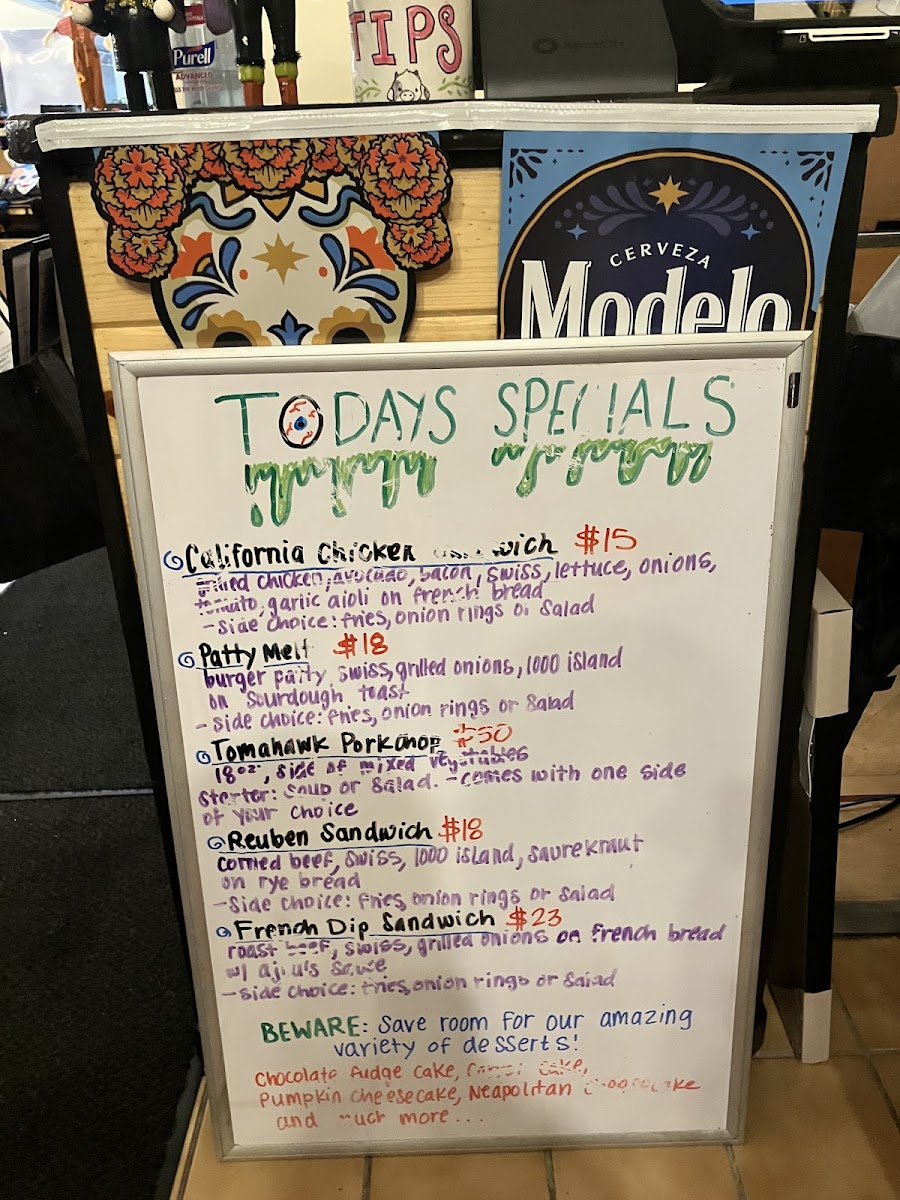 Purell
ADVANCED
TIPS
CERVEZA
Modelo
TODAYS SPECIALS
California Chicken $15
grilled chicken, avocado, bacon, swiss, lettuce, onions,
tomato, garlic aioli on french bread
- side choice: fries, onion rings or Salad
Patty Melt $18
burger patty, swiss, grilled onions, 1000 island
on sourdough toast
- side choice: fries, onion rings or Salad
Tomahawk Porkchop $50
18oz, side of mixed vegetables
starter: soup or salad. - comes with one side
of your choice
Reuben Sandwich $18
corned beef, swiss, 1000 island, saurekraut
on rye bread
- side choice: fries, onion rings or Salad
French Dip Sandwich $23
roast beef, swiss, grilled onions on french bread
w/
- side choice: fries, onion rings or Salad
BEWARE: Save room for our amazing
variety of desserts!
Chocolate fudge cake, cake,
Pumpkin cheesecake, Neapolitan
and much more...